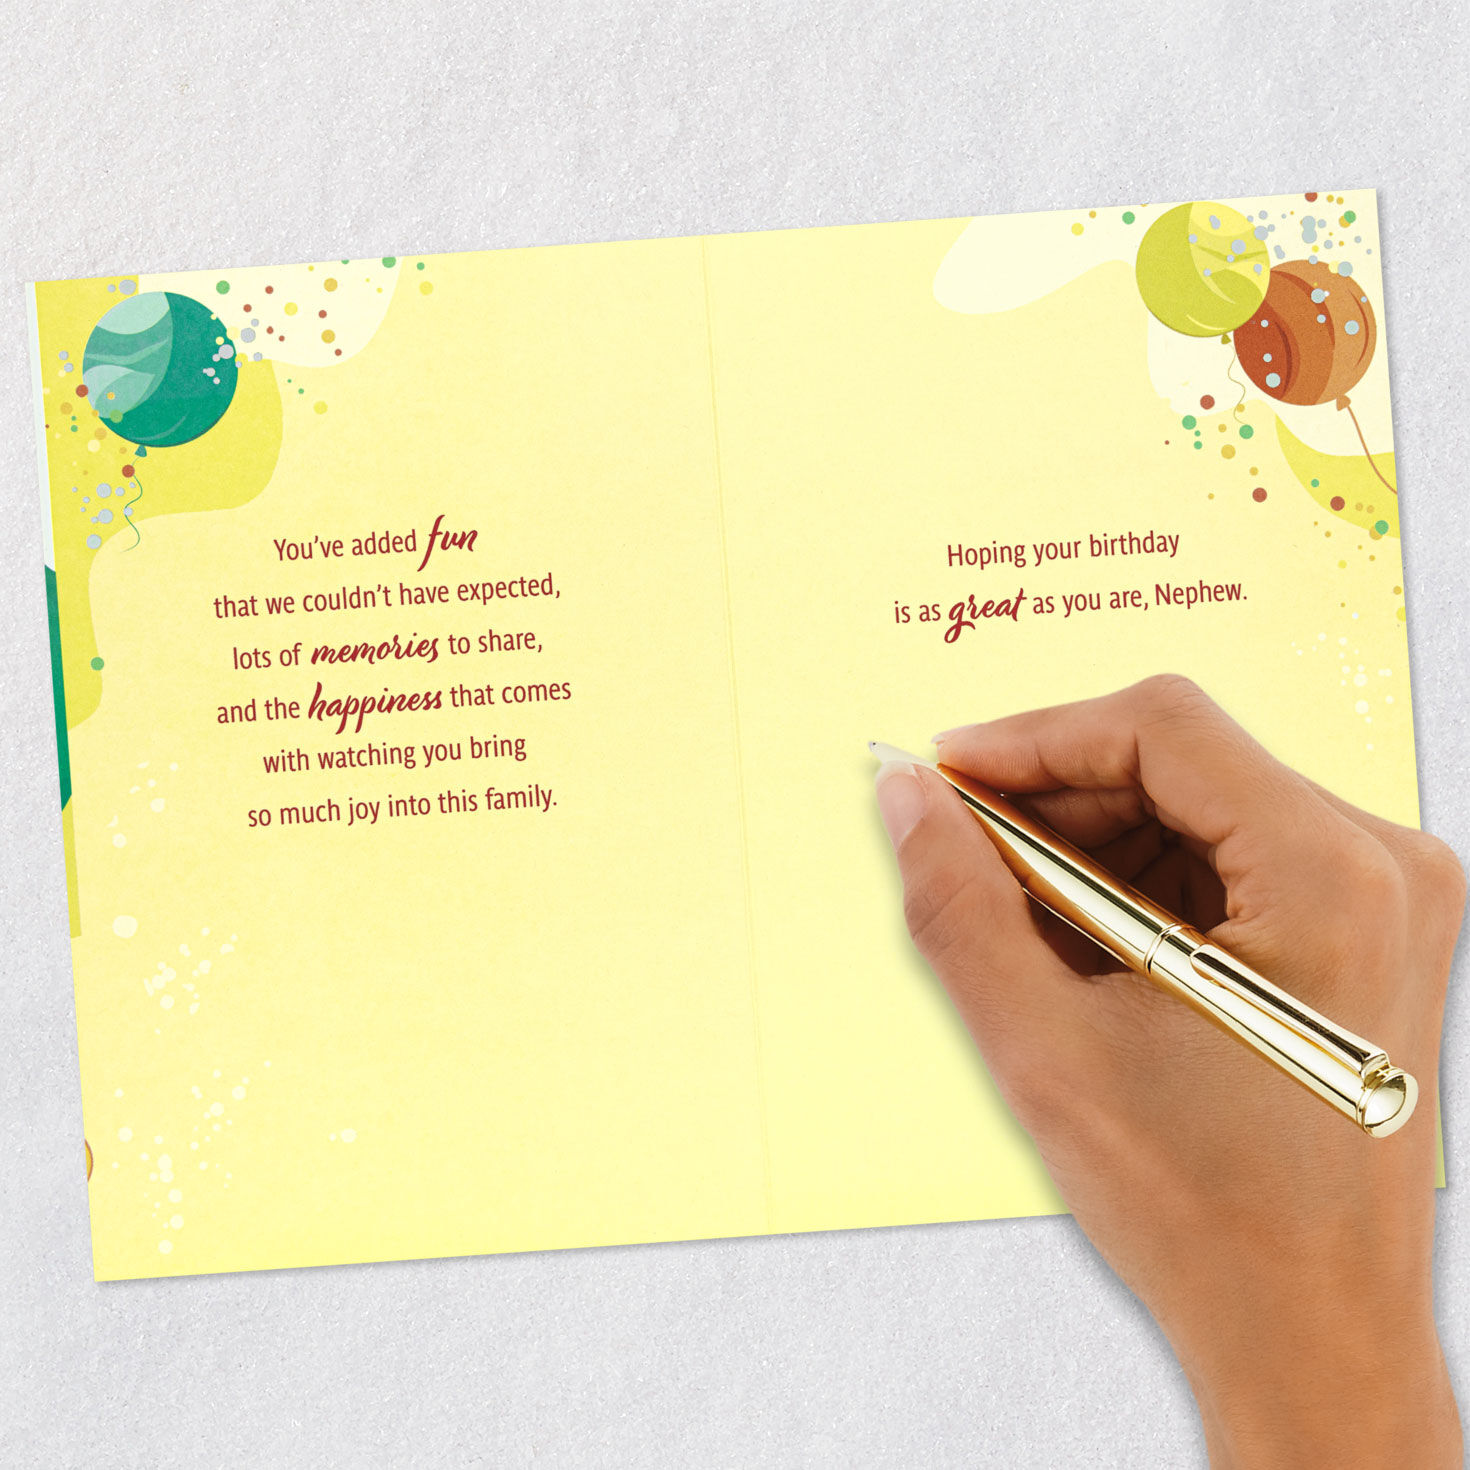 You've added fun
that we couldn't have expected,
lots of memories to share,
and the happiness that comes
with watching you bring
so much joy into this family.
Hoping your birthday
is as great as you are, Nephew.